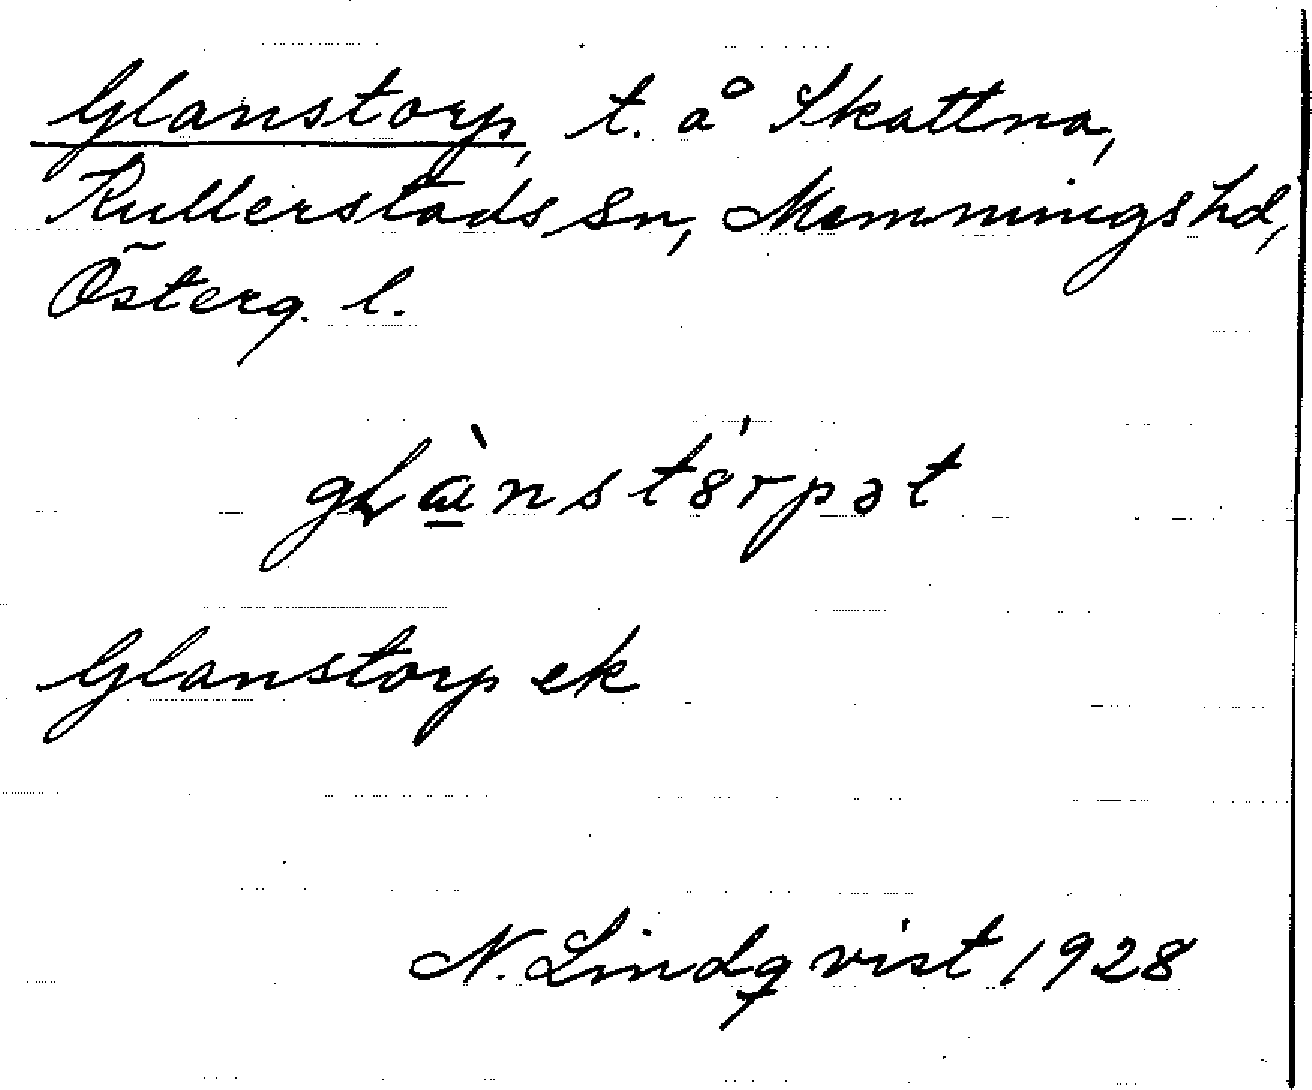 Glanstorp, t. å Skattna,
Kullerstads sn, Memmings hd,
Österg. l.
gLànstórpət
Glanstorp ek
N. Lindqvist 1928